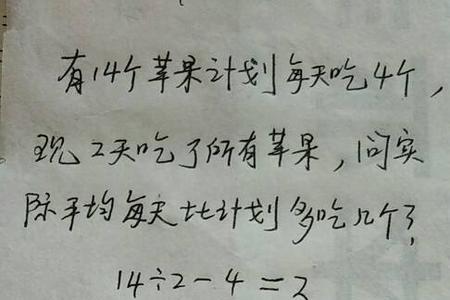 有14个苹果计划每天吃4个，
现2天吃了所有苹果，问实
际平均每天比计划多吃几个？
14÷2-4=2